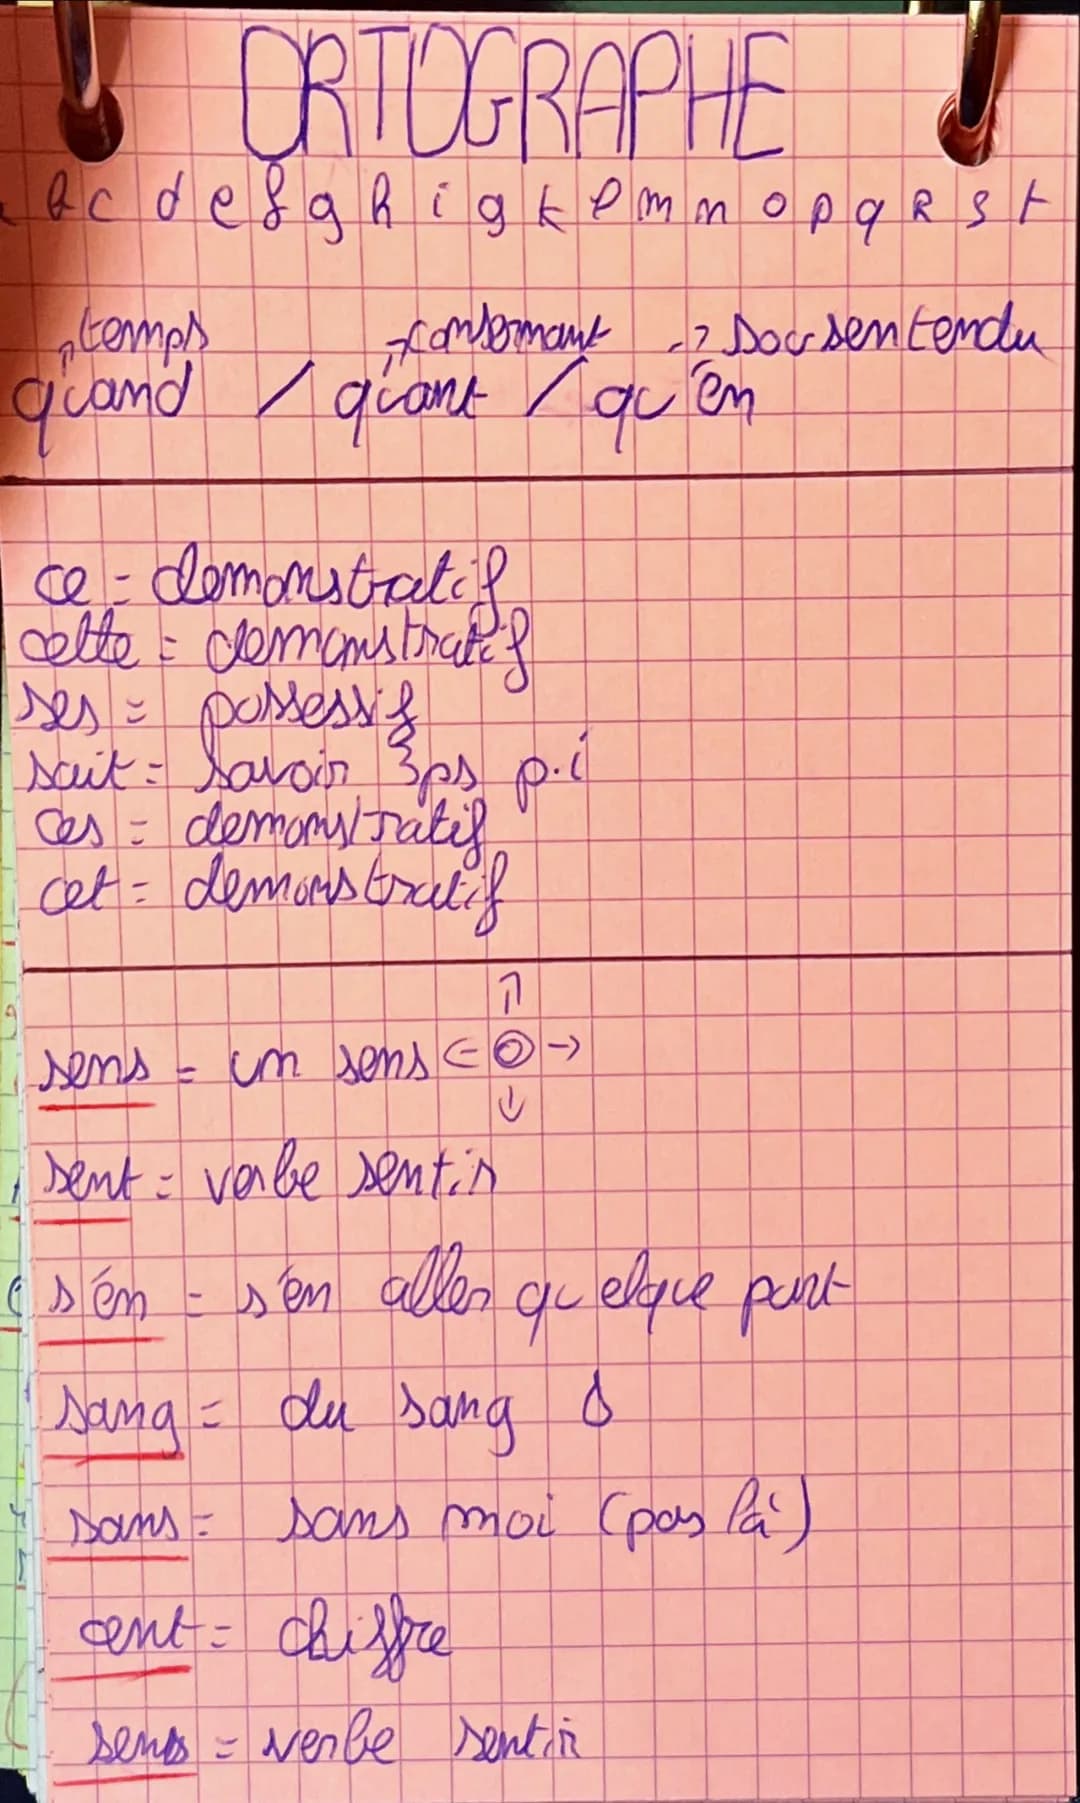 ORTOGRAPHE
b c d e f g h i g k l m n o p q R s t
temps consernant sousentendu
quand / quant / qu'en
ce = demonstratif
cette = demonstratif
ses = possessif
sait = savoir 3ps p.i
ces = demonstratif
cet = demonstratif
sens = un sens
sent = verbe sentir
s'en = s'en aller quelque part
sang = du sang
sans = sans moi (pas là)
cent = chiffre
sens = verbe sentir